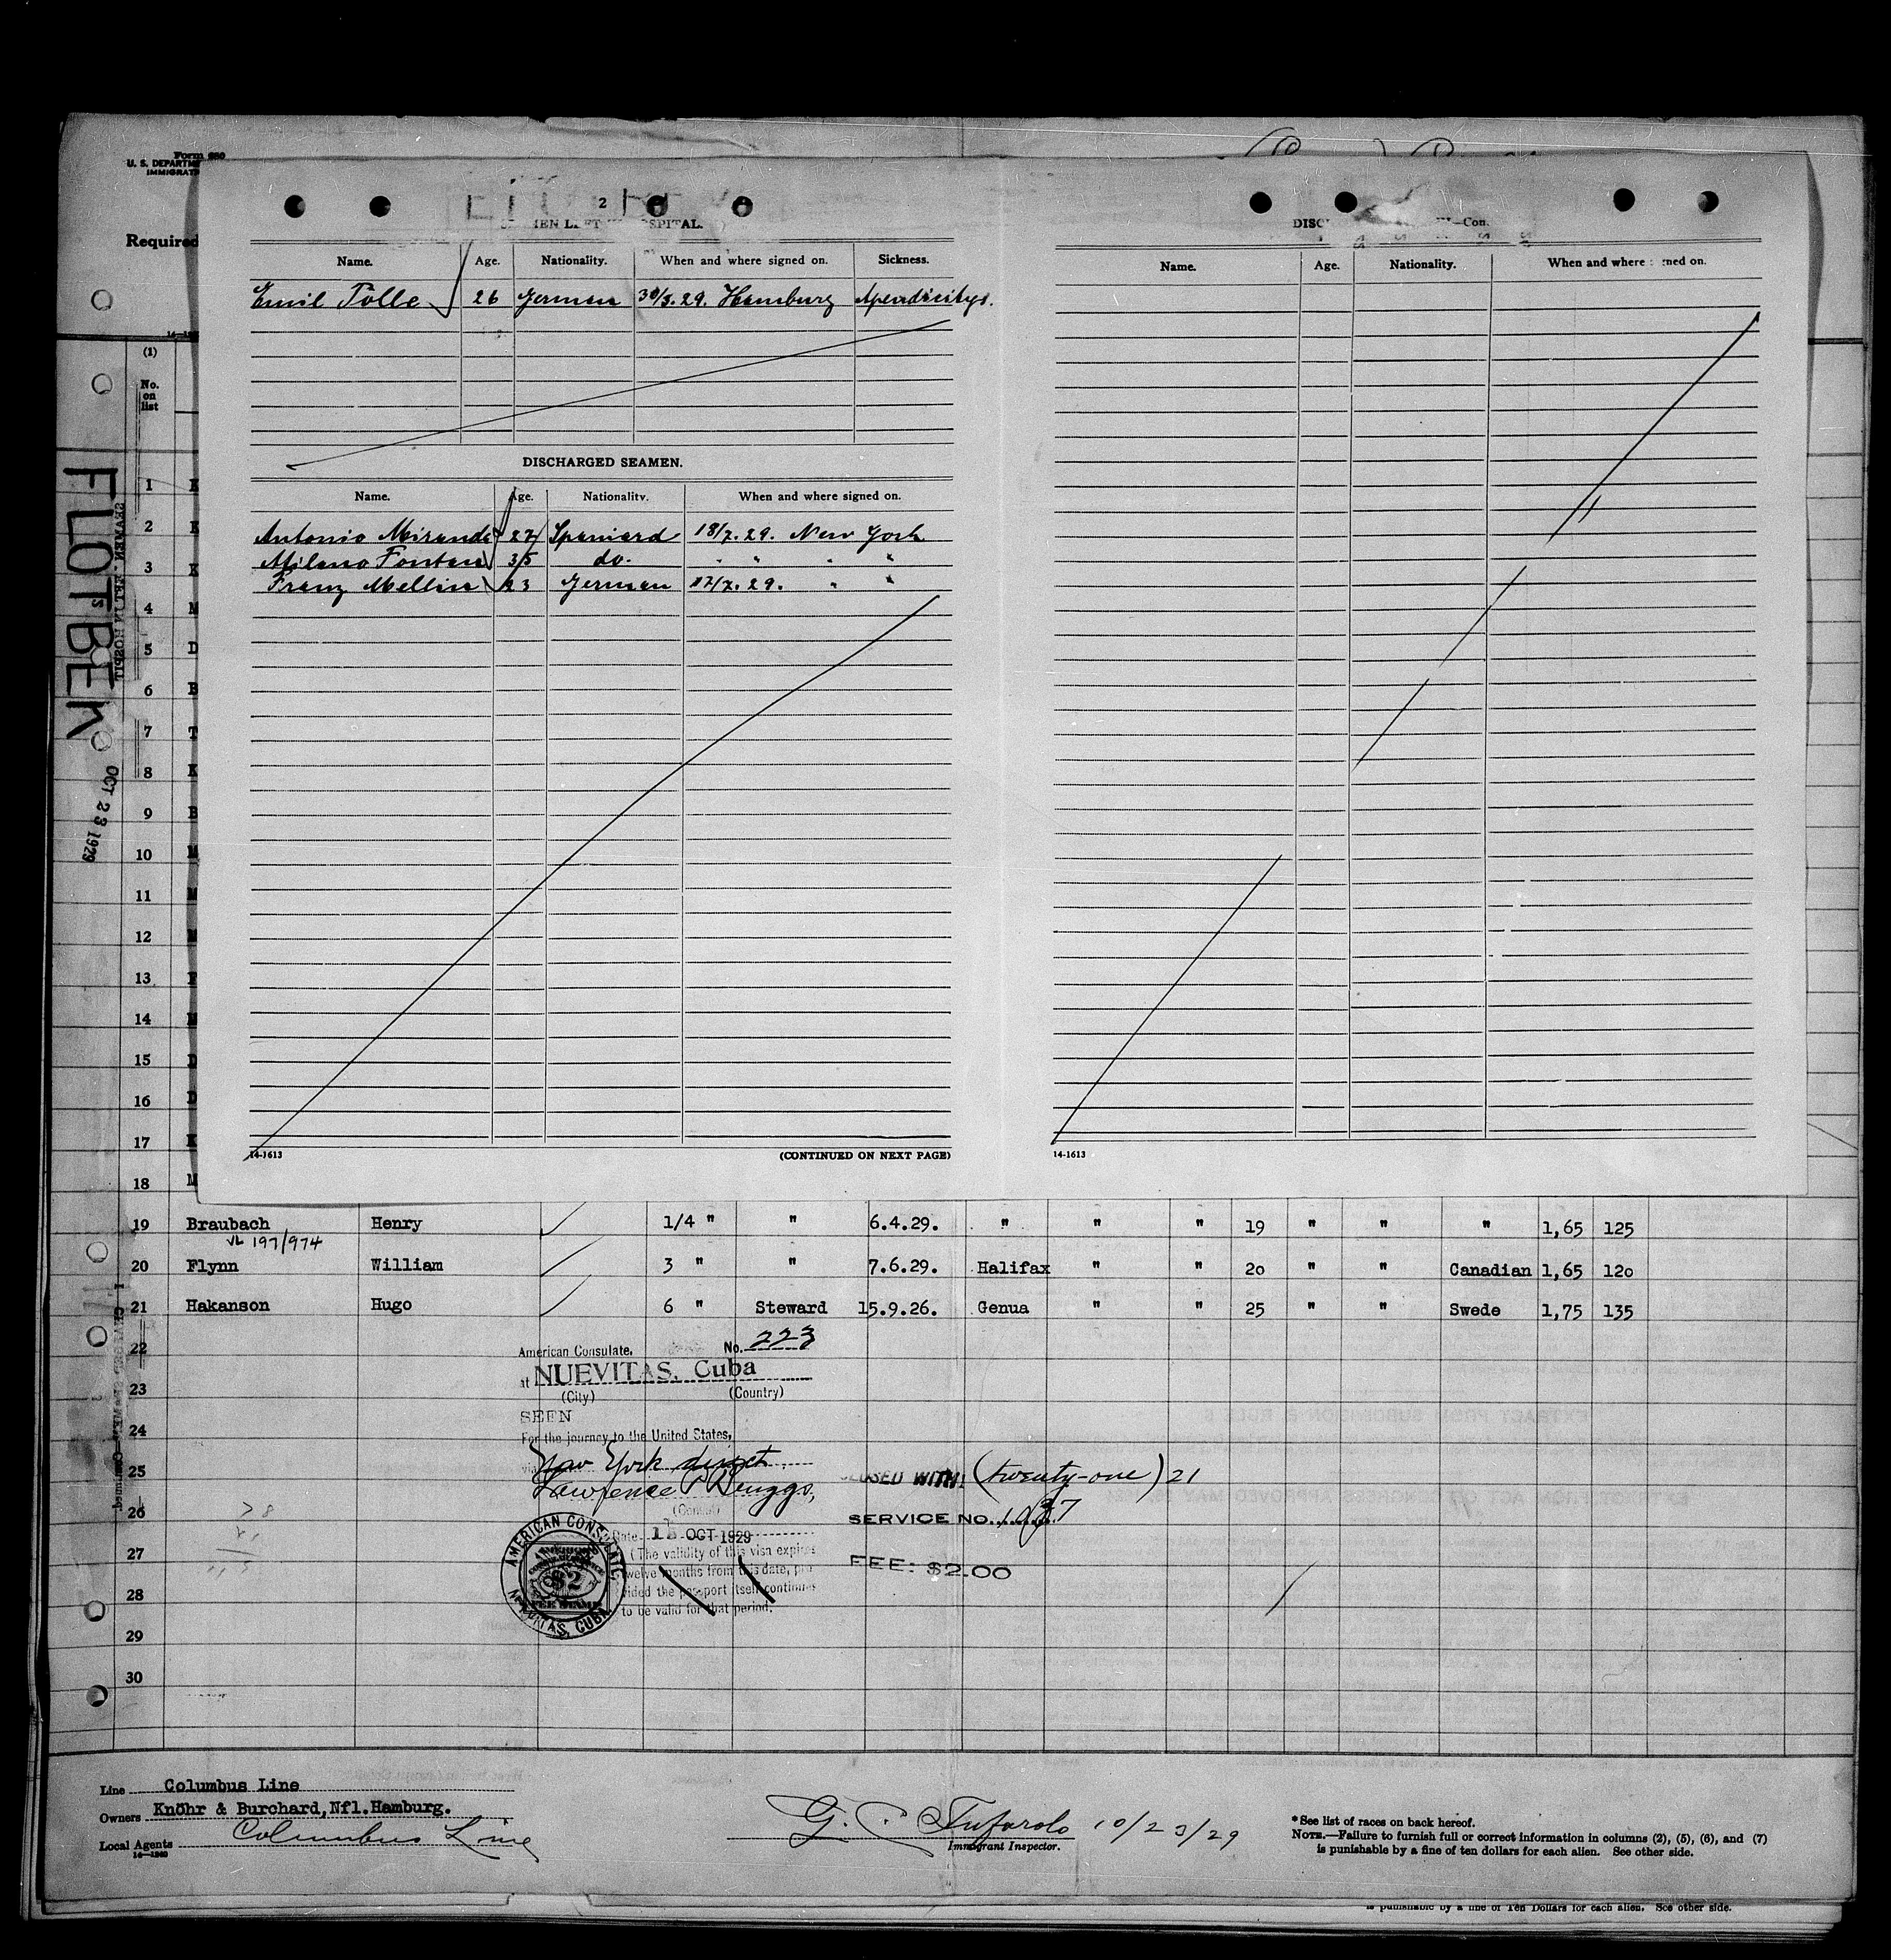 Form 680
U. S. DEPARTM
IMMIGRAT
Required
2
MEN LEFT HOSPITAL.
Name. Age. Nationality. When and where signed on. Sickness.
Emil Tölle 26 German 30/3.29. Hamburg Apendicitys.
DISCHARGED SEAMEN.
Name. Age. Nationality. When and where signed on.
Antonio Miranda 27 Spaniard 18/7.29. New York
Milano Fontan 35 do. " " " "
Franz Mellin 23 German 17/7.29. " "
14-1613 (CONTINUED ON NEXT PAGE)
DISC —Con.
Name. Age. Nationality. When and where signed on.
14-1613
(1)
No.
on
list
FLOTBEK
OCT 23 1929
1 K
2 K
3 K
4 M
5 D
6 B
7 T
8 K
9 B
10 M
11 M
12 M
13 F
14 M
15 D
16 D
17 K
18 M
19 Braubach Henry 1/4 " " 6.4.29. " " " 19 " " " 1,65 125
VL 197/974
20 Flynn William 3 " " 7.6.29. Halifax " " 20 " " Canadian 1,65 120
21 Hakanson Hugo 6 " Steward 15.9.26. Genua " " 25 " " Swede 1,75 135
22
23
24
25
26
27
28
29
30
American Consulate, No. 223
at NUEVITAS, Cuba
(City) (Country)
SEEN
For the journey to the United States,
via New York direct
Lawrence P Briggs,
(Consul)
Date OCT 1929
(The validity of this visa expires
twelve months from this date, pro
vided the passport itself continues
to be valid for that period.
AMERICAN CONSULATE.
NUEVITAS, CUBA
$2
CLOSED WITH (twenty-one) 21
SERVICE NO. 1037
FEE: $2.00
Line Columbus Line
Owners Knöhr & Burchard, Nfl. Hamburg.
Local Agents Columbus Line
14—1240
G. C. Tufarolo 10/23/29
Immigrant Inspector.
*See list of races on back hereof.
NOTE.—Failure to furnish full or correct information in columns (2), (5), (6), and (7)
is punishable by a fine of ten dollars for each alien. See other side.
is punishable by a fine of Ten Dollars for each alien. See other side.